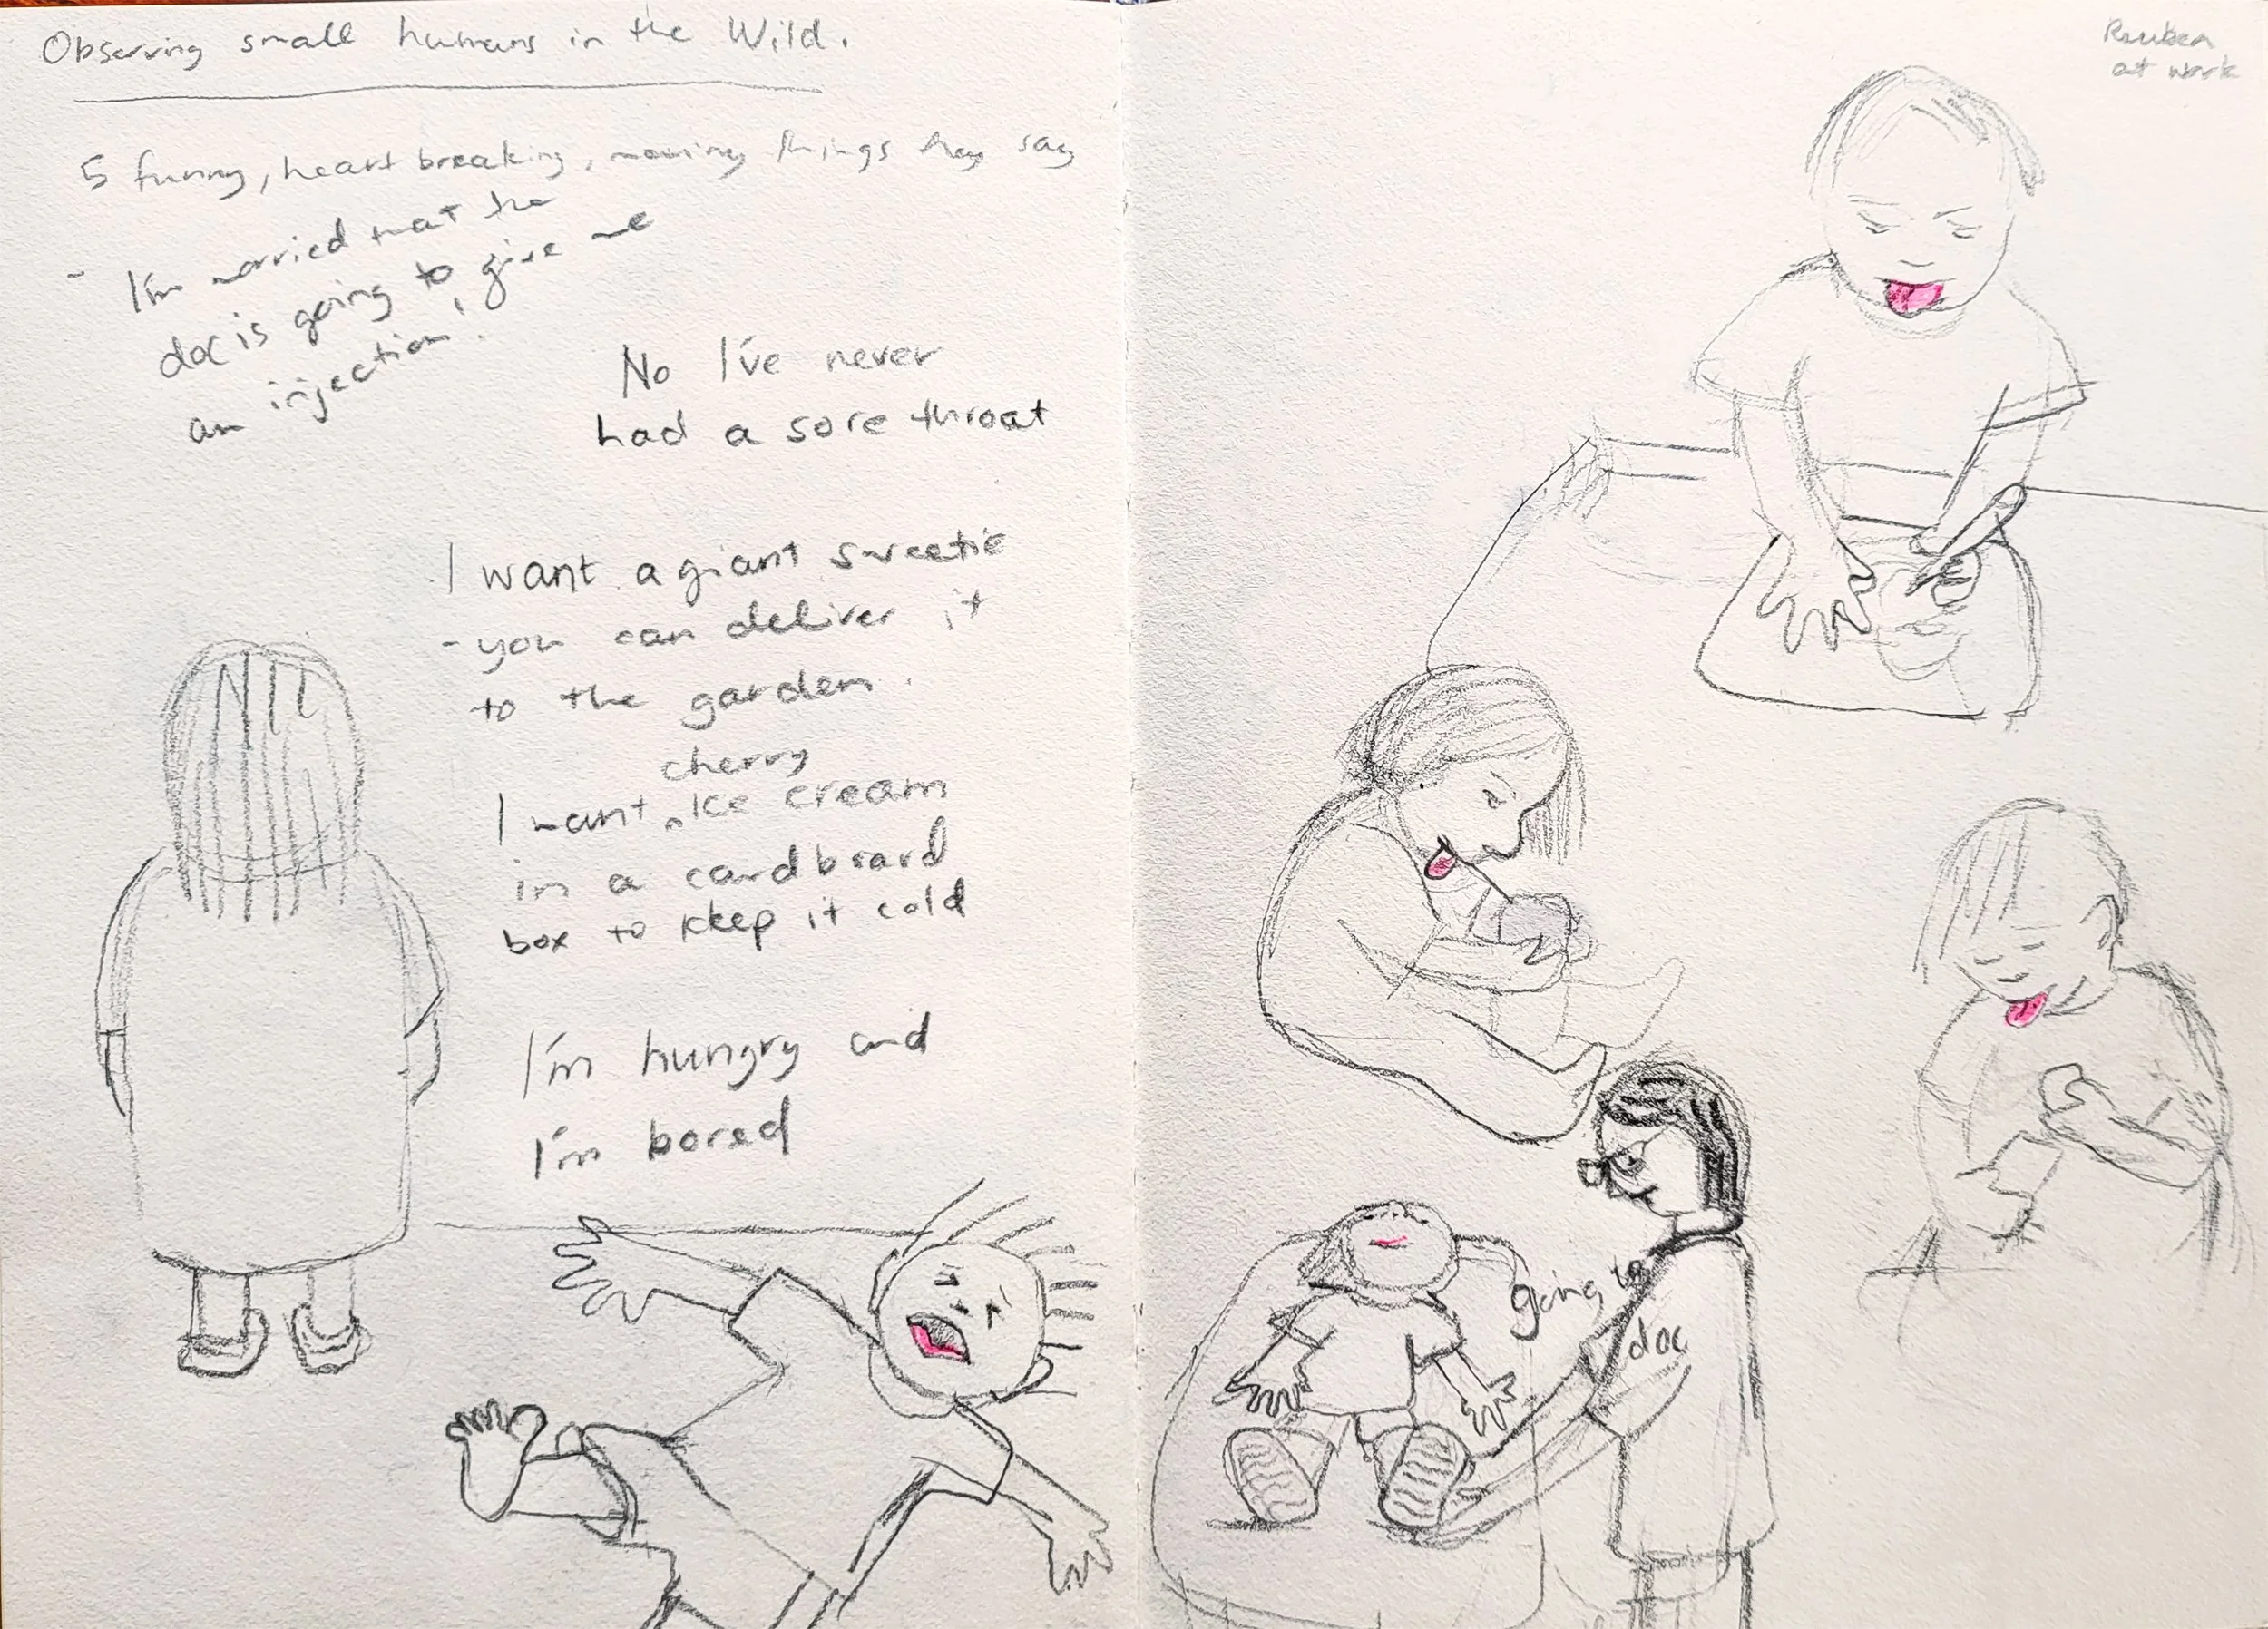 Observing small humans in the Wild.
5 funny, heart breaking, moving things they say
- I'm worried that the
doc is going to give me
an injection!
No I've never
had a sore throat
I want a giant sweetie
- you can deliver it
to the garden.
cherry
I want ^ Ice cream
in a cardboard
box to keep it cold
I'm hungry and
I'm bored
Reuben
at work
going to
doc